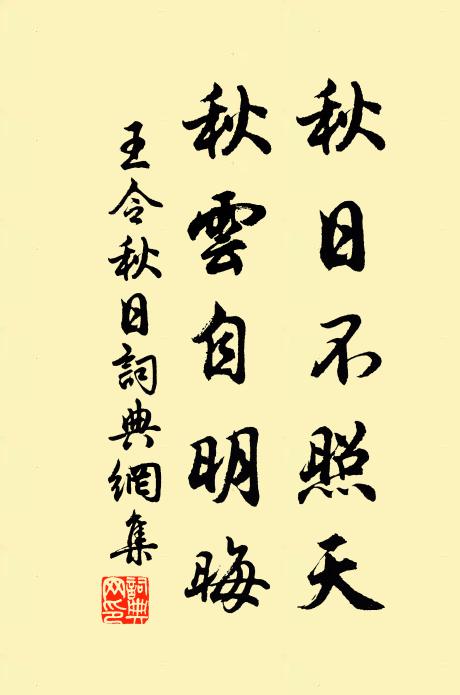 秋日不照天
秋雲自明晦
王令秋日詞典網集
詞典網印